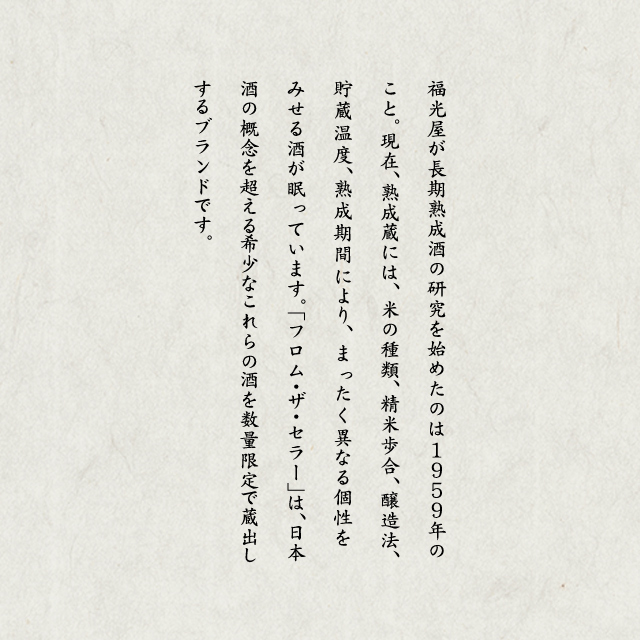 福光屋が長期熟成酒の研究を始めたのは1959年の
こと。現在、熟成蔵には、米の種類、精米歩合、醸造法、
貯蔵温度、熟成期間により、まったく異なる個性を
みせる酒が眠っています。「フロム・ザ・セラー」は、日本
酒の概念を超える希少なこれらの酒を数量限定で蔵出し
するブランドです。